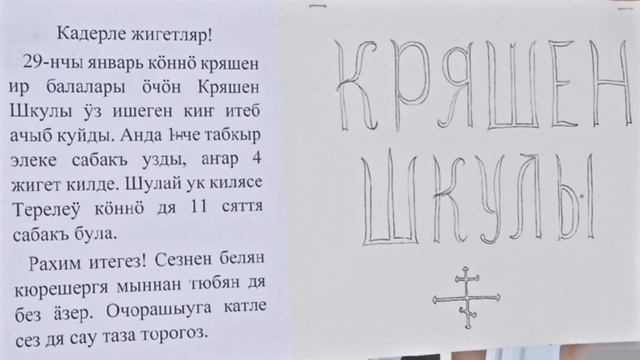 Кадерле жигетляр!
29-нчы январь кӧннӧ кряшен
ир балалары ӧчӧн Кряшен
Шкулы ӱз ишеген киҥ итеб
ачыб куйды. Анда 1-нче табкыр
элеке сабакъ узды, аҥар 4
жигет килде. Шулай ук килясе
Терелеӱ кӧннӧ дя 11 сяття
сабакъ була.
Рахим итегез! Сезнен белян
кюрешергя мыннан тюбян дя
без ӓзер. Очорашыуга катле
сез дя сау таза торогоз.
КРЯШЕН
ШКУЛЫ